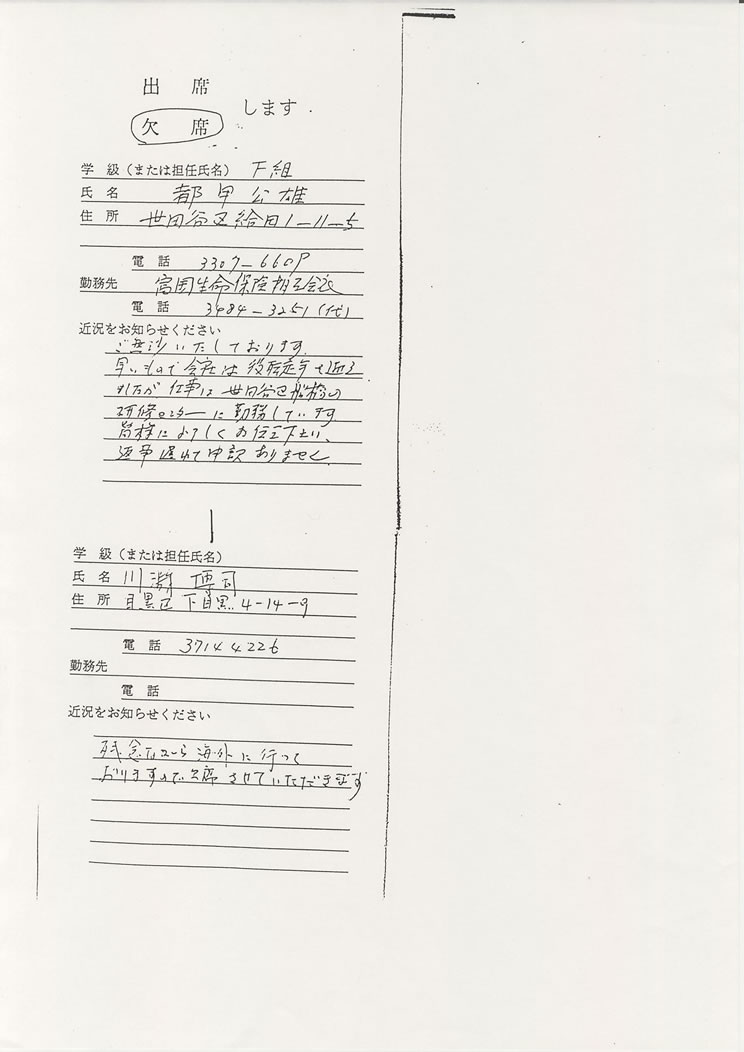 出席
欠席
します
学級(または担任氏名) F組
氏名 都甲公雄
住所 世田谷区給田1-11-5
電話 3307-6609
勤務先 富国生命保険相互会社
電話 3484-3251(代)
近況をお知らせください
ご無沙いたしております。
早いもので会社は役職定年を迎え
ましたが仕事は世田谷区船橋の
研修センターに勤務しています。
皆様によろしくお伝え下さい、
返事遅れて申訳ありません。
学級(または担任氏名)
氏名 川瀬博司
住所 目黒区下目黒4-14-9
電話 3714 4226
勤務先
電話
近況をお知らせください
残念ながら海外に行って
おりますので欠席させていただきます